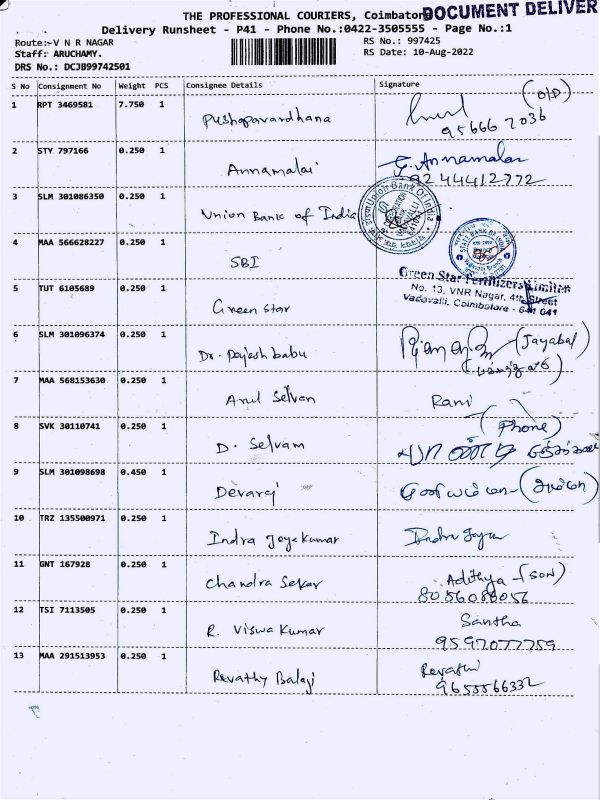 THE PROFESSIONAL COURIERS, Coimbatore
DOCUMENT DELIVER
Delivery Runsheet - P41 - Phone No.:0422-3505555 - Page No.:1
Route:-V N R NAGAR
RS No.: 997425
Staff: ARUCHAMY.
RS Date: 10-Aug-2022
DRS No.: DCJB99742501
S No Consignment No Weight PCS Consignee Details Signature
1 RPT 3469581 7.750 1 (O/D)
Pushpavardhana
95666 72036
2 STY 797166 0.250 1 G. Annamalai
Annamalai 9244412772
3 SLM 301086350 0.250 1
Union Bank of India
Union Bank Of India
4 MAA 566628227 0.250 1
SBI
STATE BANK OF INDIA
5 TUT 6105689 0.250 1 Green Star Fertilizers Limited
No. 13, VNR Nagar, 4th Street
Vadavalli, Coimbatore - 641 041
Green Star
6 SLM 301096374 0.250 1 (Jayabal)
Dr. Rajesh babu
7 MAA 568153630 0.250 1
Arul Selvan Rani
8 SVK 30110741 0.250 1 (Phone)
D. Selvam
9 SLM 301098698 0.450 1
Devaraj
10 TRZ 135500971 0.250 1
Indra Jeyakumar
11 GNT 167928 0.250 1
Chandra Seker Adithya - (SON)
8056088056
12 TSI 7113505 0.250 1 Santha
R. Viswa Kumar 9597077759
13 MAA 291513953 0.250 1 Revathi
Revathy Balaji 9655566332